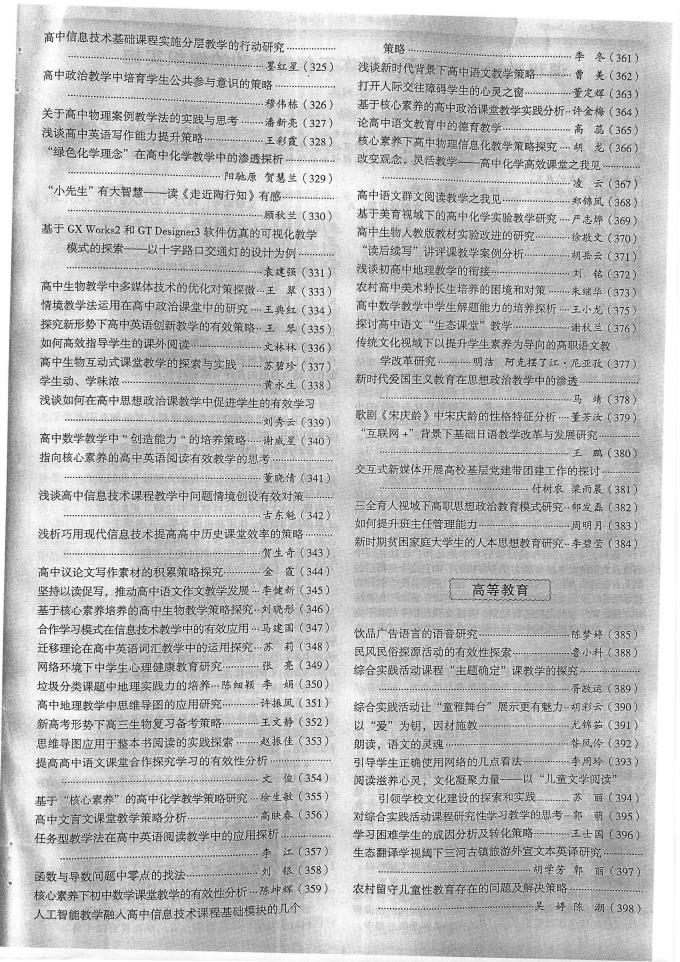 高中信息技术基础课程实施分层教学的行动研究…………
…………………………………………墨红星(325)
高中政治教学中培育学生公共参与意识的策略…………
…………………………………………穆伟栋(326)
关于高中物理案例教学法的实践与思考……潘新亮(327)
浅谈高中英语写作能力提升策略……………王彩霞(328)
“绿色化学理念”在高中化学教学中的渗透探析…………
……………………………………阳驰原 贺慧兰(329)
“小先生”有大智慧——读《走近陶行知》有感…………
…………………………………………顾秋兰(330)
基于 GX Works2 和 GT Designer3 软件仿真的可视化教学
模式的探索——以十字路口交通灯的设计为例…………
…………………………………………袁建强(331)
高中生物教学中多媒体技术的优化对策探微…王 翠(333)
情境教学法运用在高中政治课堂中的研究…王典红(334)
探究新形势下高中英语创新教学的有效策略…王 琴(335)
如何高效指导学生的课外阅读………………文林林(336)
高中生物互动式课堂教学的探索与实践……苏碧珍(337)
学生动、学味浓………………………………黄永生(338)
浅谈如何在高中思想政治课教学中促进学生的有效学习
…………………………………………刘秀云(339)
高中数学教学中“创造能力”的培养策略…谢威星(340)
指向核心素养的高中英语阅读有效教学的思考…………
…………………………………………董晓倩(341)
浅谈高中信息技术课程教学中问题情境创设有效对策……
…………………………………………古东魁(342)
浅析巧用现代信息技术提高高中历史课堂效率的策略……
…………………………………………贺生奇(343)
高中议论文写作素材的积累策略探究………金 霞(344)
坚持以读促写，推动高中语文作文教学发展…李健新(345)
基于核心素养培养的高中生物教学策略探究…刘晓彤(346)
合作学习模式在信息技术教学中的有效应用…马建国(347)
迁移理论在高中英语词汇教学中的运用探究…苏 莉(348)
网络环境下中学生心理健康教育研究………张 亮(349)
垃圾分类课题中地理实践力的培养…陈细颖 李 娟(350)
高中地理教学中思维导图的应用研究………许振凤(351)
新高考形势下高三生物复习备考策略………王文静(352)
思维导图应用于整本书阅读的实践探索……赵振佳(353)
提高高中语文课堂合作探究学习的有效性分析…………
…………………………………………文 俭(354)
基于“核心素养”的高中化学教学策略研究…徐生敏(355)
高中文言文课堂教学策略分析………………高映春(356)
任务型教学法在高中英语阅读教学中的应用探析………
…………………………………………李 江(357)
函数与导数问题中零点的找法………………刘 银(358)
核心素养下初中数学课堂教学的有效性分析…陈坤辉(359)
人工智能教学融入高中信息技术课程基础模块的几个
策略……………………………………李 冬(361)
浅谈新时代背景下高中语文教学策略………曹 美(362)
打开人际交往障碍学生的心灵之窗…………董定辉(363)
基于核心素养的高中政治课堂教学实践分析…许金梅(364)
论高中语文教育中的德育教学………………高 蕊(365)
核心素养下高中物理信息化教学策略探究…胡 龙(366)
改变观念，灵活教学——高中化学高效课堂之我见………
…………………………………………凌 云(367)
高中语文群文阅读教学之我见………………郑锦凤(368)
基于美育视域下的高中化学实验教学研究…严志烨(369)
高中生物人教版教材实验改进的研究………徐敖文(370)
“读后续写”讲评课教学案例分析…………胡岳云(371)
浅谈初高中地理教学的衔接…………………刘 铭(372)
农村高中美术特长生培养的困境和对策……朱继华(373)
高中数学教学中学生解题能力的培养探析…王小龙(375)
探讨高中语文“生态课堂”教学……………谢秋兰(376)
传统文化视域下以提升学生素养为导向的高职语文教
学改革研究…………明洁 阿克摆了江·尼亚孜(377)
新时代爱国主义教育在思想政治教学中的渗透…………
…………………………………………马 靖(378)
歌剧《宋庆龄》中宋庆龄的性格特征分析…董芳汝(379)
“互联网+”背景下基础日语教学改革与发展研究………
…………………………………………王 鹏(380)
交互式新媒体开展高校基层党建带团建工作的探讨………
……………………………………付树农 梁雨晨(381)
三全育人视域下高职思想政治教育模式研究…郇发磊(382)
如何提升班主任管理能力……………………周明月(383)
新时期贫困家庭大学生的人本思想教育研究…李碧莹(384)
高等教育
饮品广告语言的语音研究……………………陈梦婷(385)
民风民俗探源活动的有效性探索……………鲁小科(388)
综合实践活动课程“主题确定”课教学的探究…………
…………………………………………胥敢运(389)
综合实践活动让“童雅舞台”展示更有魅力…胡彩云(390)
以“爱”为钥，因材施教……………………尤锦茹(391)
朗读，语文的灵魂……………………………昝凤伶(392)
引导学生正确使用网络的几点看法…………李周玲(393)
阅读滋养心灵，文化凝聚力量——以“儿童文学阅读”
引领学校文化建设的探索和实践………苏 丽(394)
对综合实践活动课程研究性学习教学的思考…郭 萌(395)
学习困难学生的成因分析及转化策略………王士国(396)
生态翻译学视阈下三河古镇旅游外宣文本英译研究………
……………………………………胡学芳 郭 丽(397)
农村留守儿童性教育存在的问题及解决策略…………
……………………………………吴 婷 陈 潮(398)